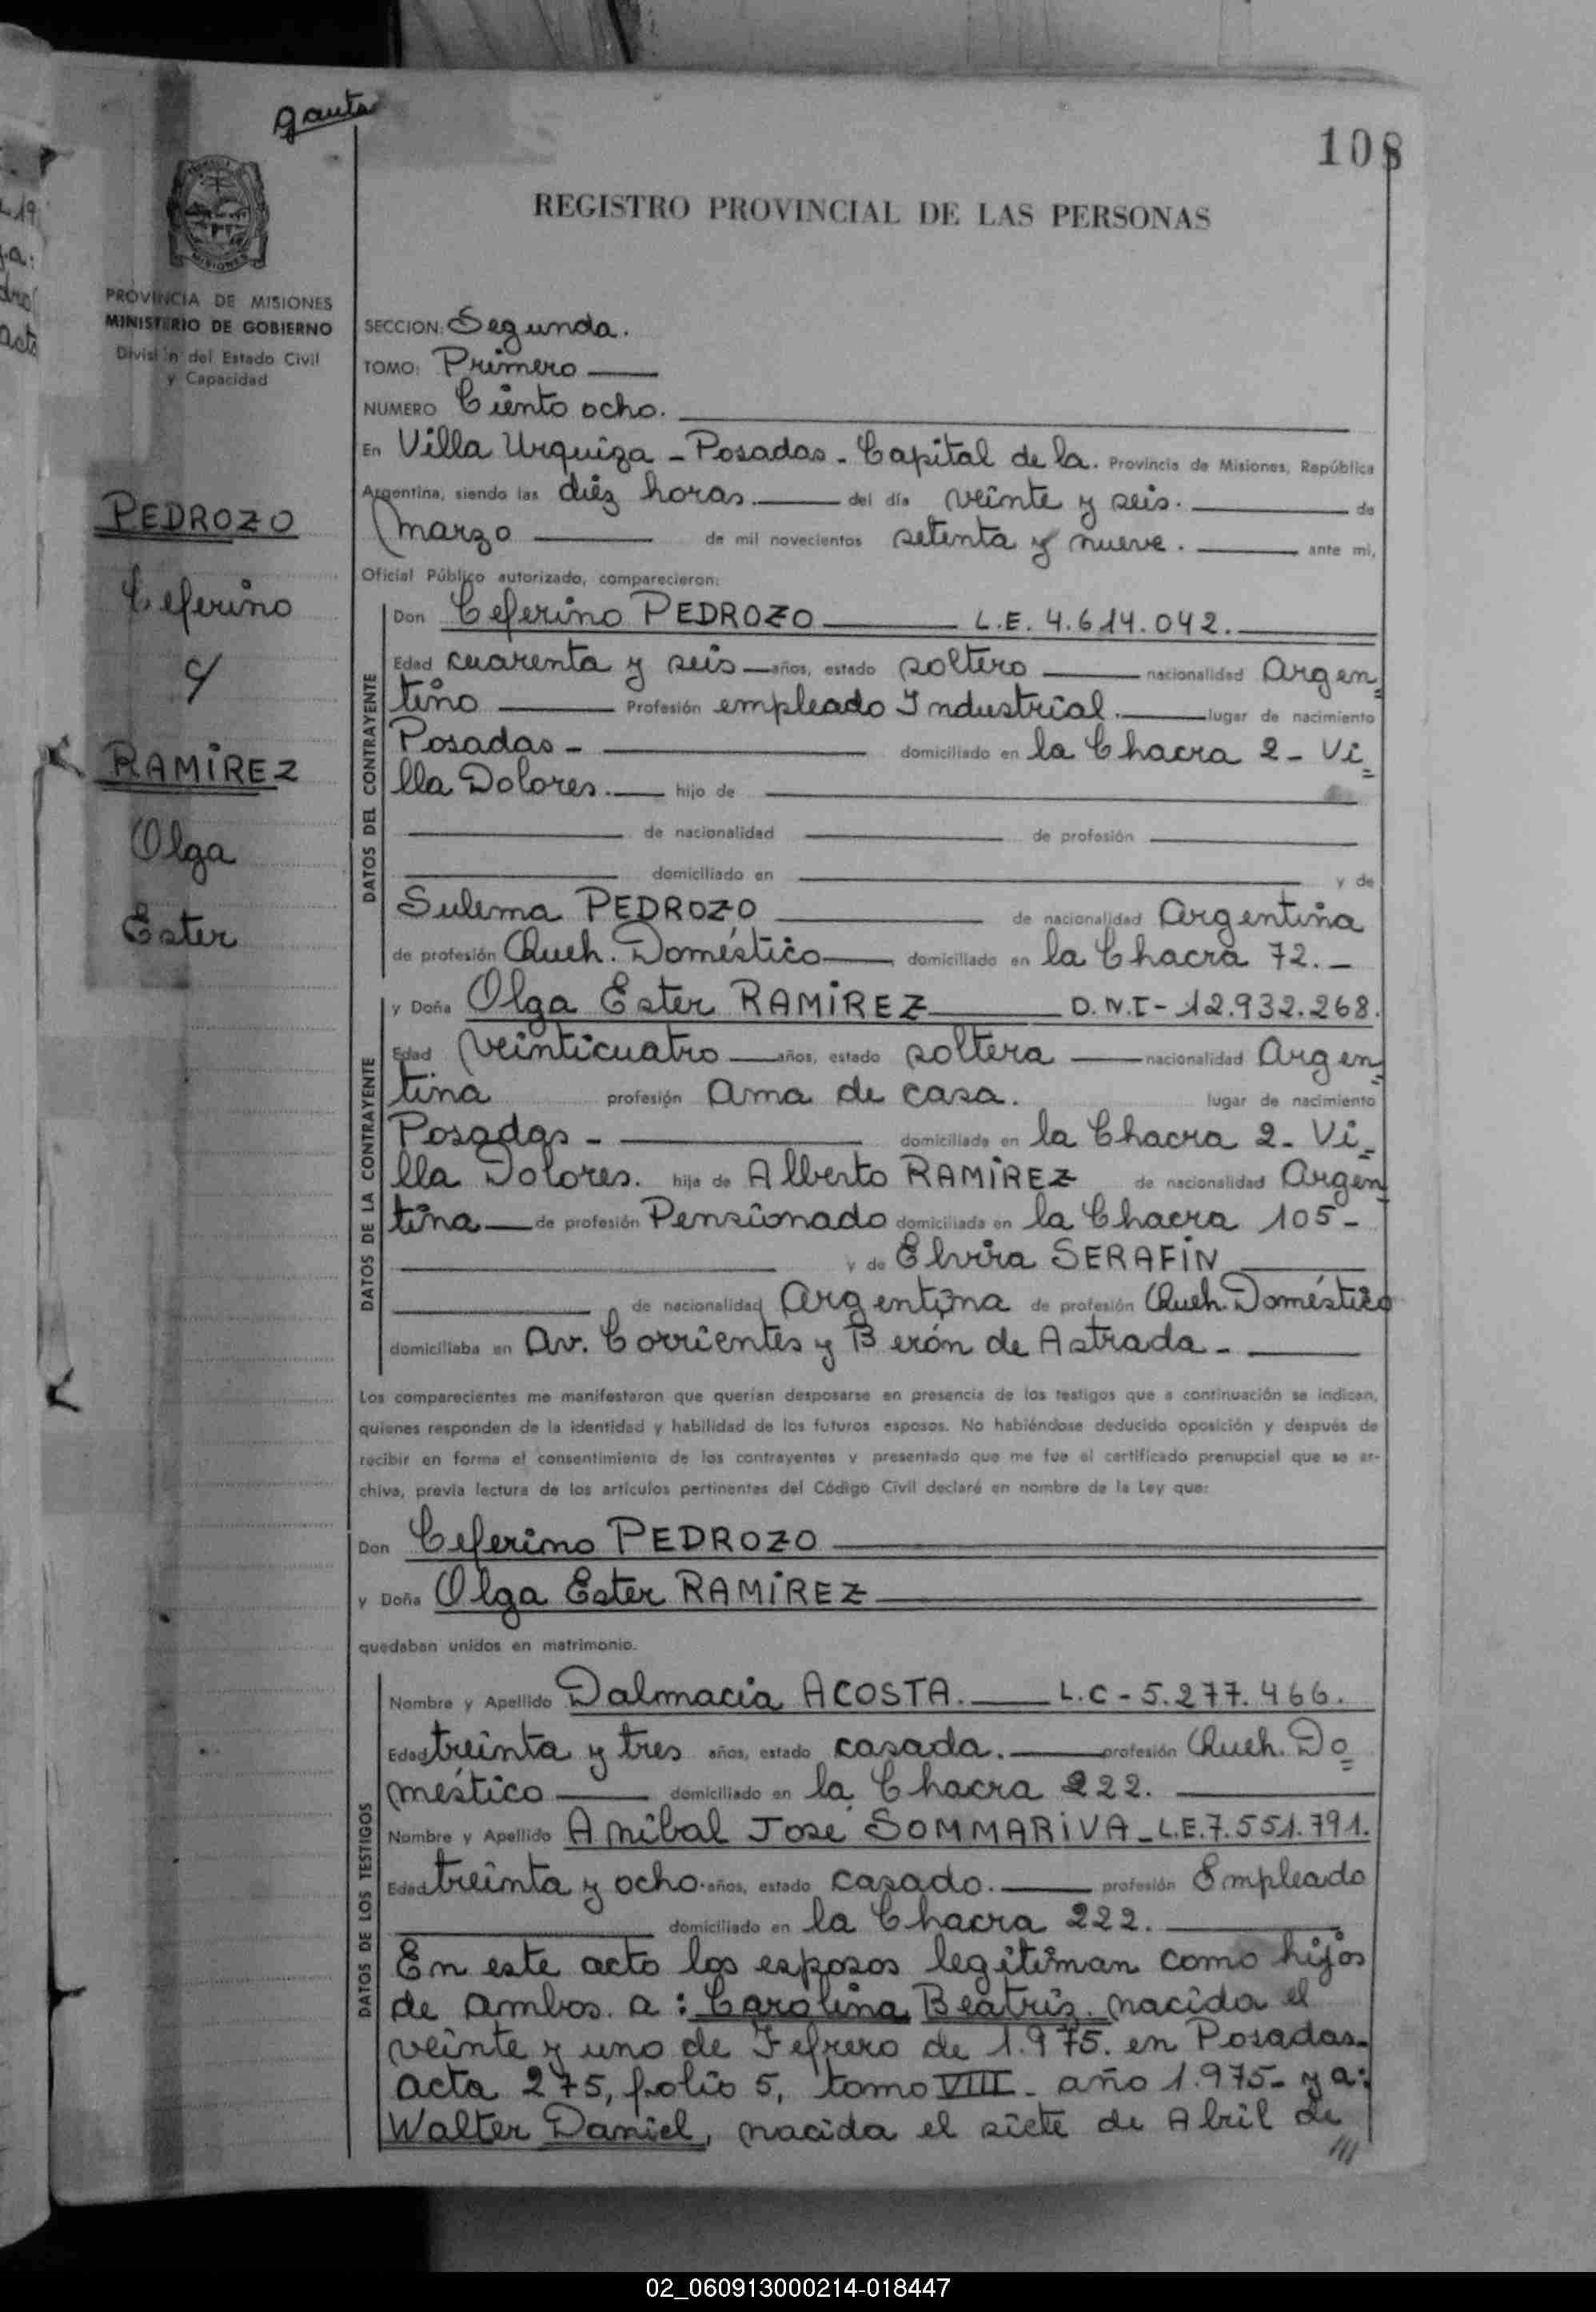 gauto
108
REGISTRO PROVINCIAL DE LAS PERSONAS
MISIONES
PROVINCIA DE MISIONES
MINISTERIO DE GOBIERNO
División del Estado Civil
y Capacidad
PEDROZO
Ceferino
c/
RAMIREZ
Olga
Ester
SECCION: Segunda.
TOMO: Primero
NUMERO Ciento ocho.
En Villa Urquiza - Posadas - Capital de la. Provincia de Misiones, República
Argentina, siendo las diéz horas. del día veinte y seis. de
marzo de mil novecientos setenta y nueve. ante mi,
Oficial Público autorizado, comparecieron:
DATOS DEL CONTRAYENTE
Don Ceferino PEDROZO L.E. 4.614.042.
Edad cuarenta y seis años, estado soltero nacionalidad Argen=
tino Profesión empleado Industrial. lugar de nacimiento
Posadas - domiciliado en la Chacra 2 - Vi=
lla Dolores. hijo de
de nacionalidad de profesión
domiciliado en y de
Sulema PEDROZO de nacionalidad Argentina
de profesión Queh. Doméstico domiciliado en la Chacra 72. -
DATOS DE LA CONTRAYENTE
y Doña Olga Ester RAMIREZ D.N.I - 12.932.268.
Edad veinticuatro años, estado soltera nacionalidad Argen=
tina profesión Ama de casa. lugar de nacimiento
Posadas - domiciliada en la Chacra 2 - Vi=
lla Dolores. hija de Alberto RAMIREZ de nacionalidad Argen=
tina de profesión Pensionado domiciliada en la Chacra 105 -
y de Elvira SERAFIN
de nacionalidad Argentina de profesión Queh. Doméstico
domiciliaba en Av. Corrientes y Berón de Astrada -
Los comparecientes me manifestaron que querían desposarse en presencia de los testigos que a continuación se indican,
quienes responden de la identidad y habilidad de los futuros esposos. No habiéndose deducido oposición y después de
recibir en forma el consentimiento de los contrayentes y presentado que me fue el certificado prenupcial que se ar-
chiva, previa lectura de los artículos pertinentes del Código Civil declaré en nombre de la Ley que:
Don Ceferino PEDROZO
y Doña Olga Ester RAMIREZ
quedaban unidos en matrimonio.
DATOS DE LOS TESTIGOS
Nombre y Apellido Dalmacia ACOSTA. L.C - 5.277.466.
Edad treinta y tres años, estado casada. profesión Queh. Do=
méstico domiciliado en la Chacra 222.
Nombre y Apellido Anibal José SOMMARIVA - L.E. 7.551.791.
Edad treinta y ocho. años, estado casado. profesión Empleado
domiciliado en la Chacra 222.
En este acto los esposos legitiman como hijos
de ambos. a: Carolina Beatriz. nacida el
veinte y uno de Febrero de 1.975. en Posadas-
acta 275, folio 5, tomo VIII - año 1.975- y a:
Walter Daniel, nacida el siete de Abril de
///
02_060913000214-018447